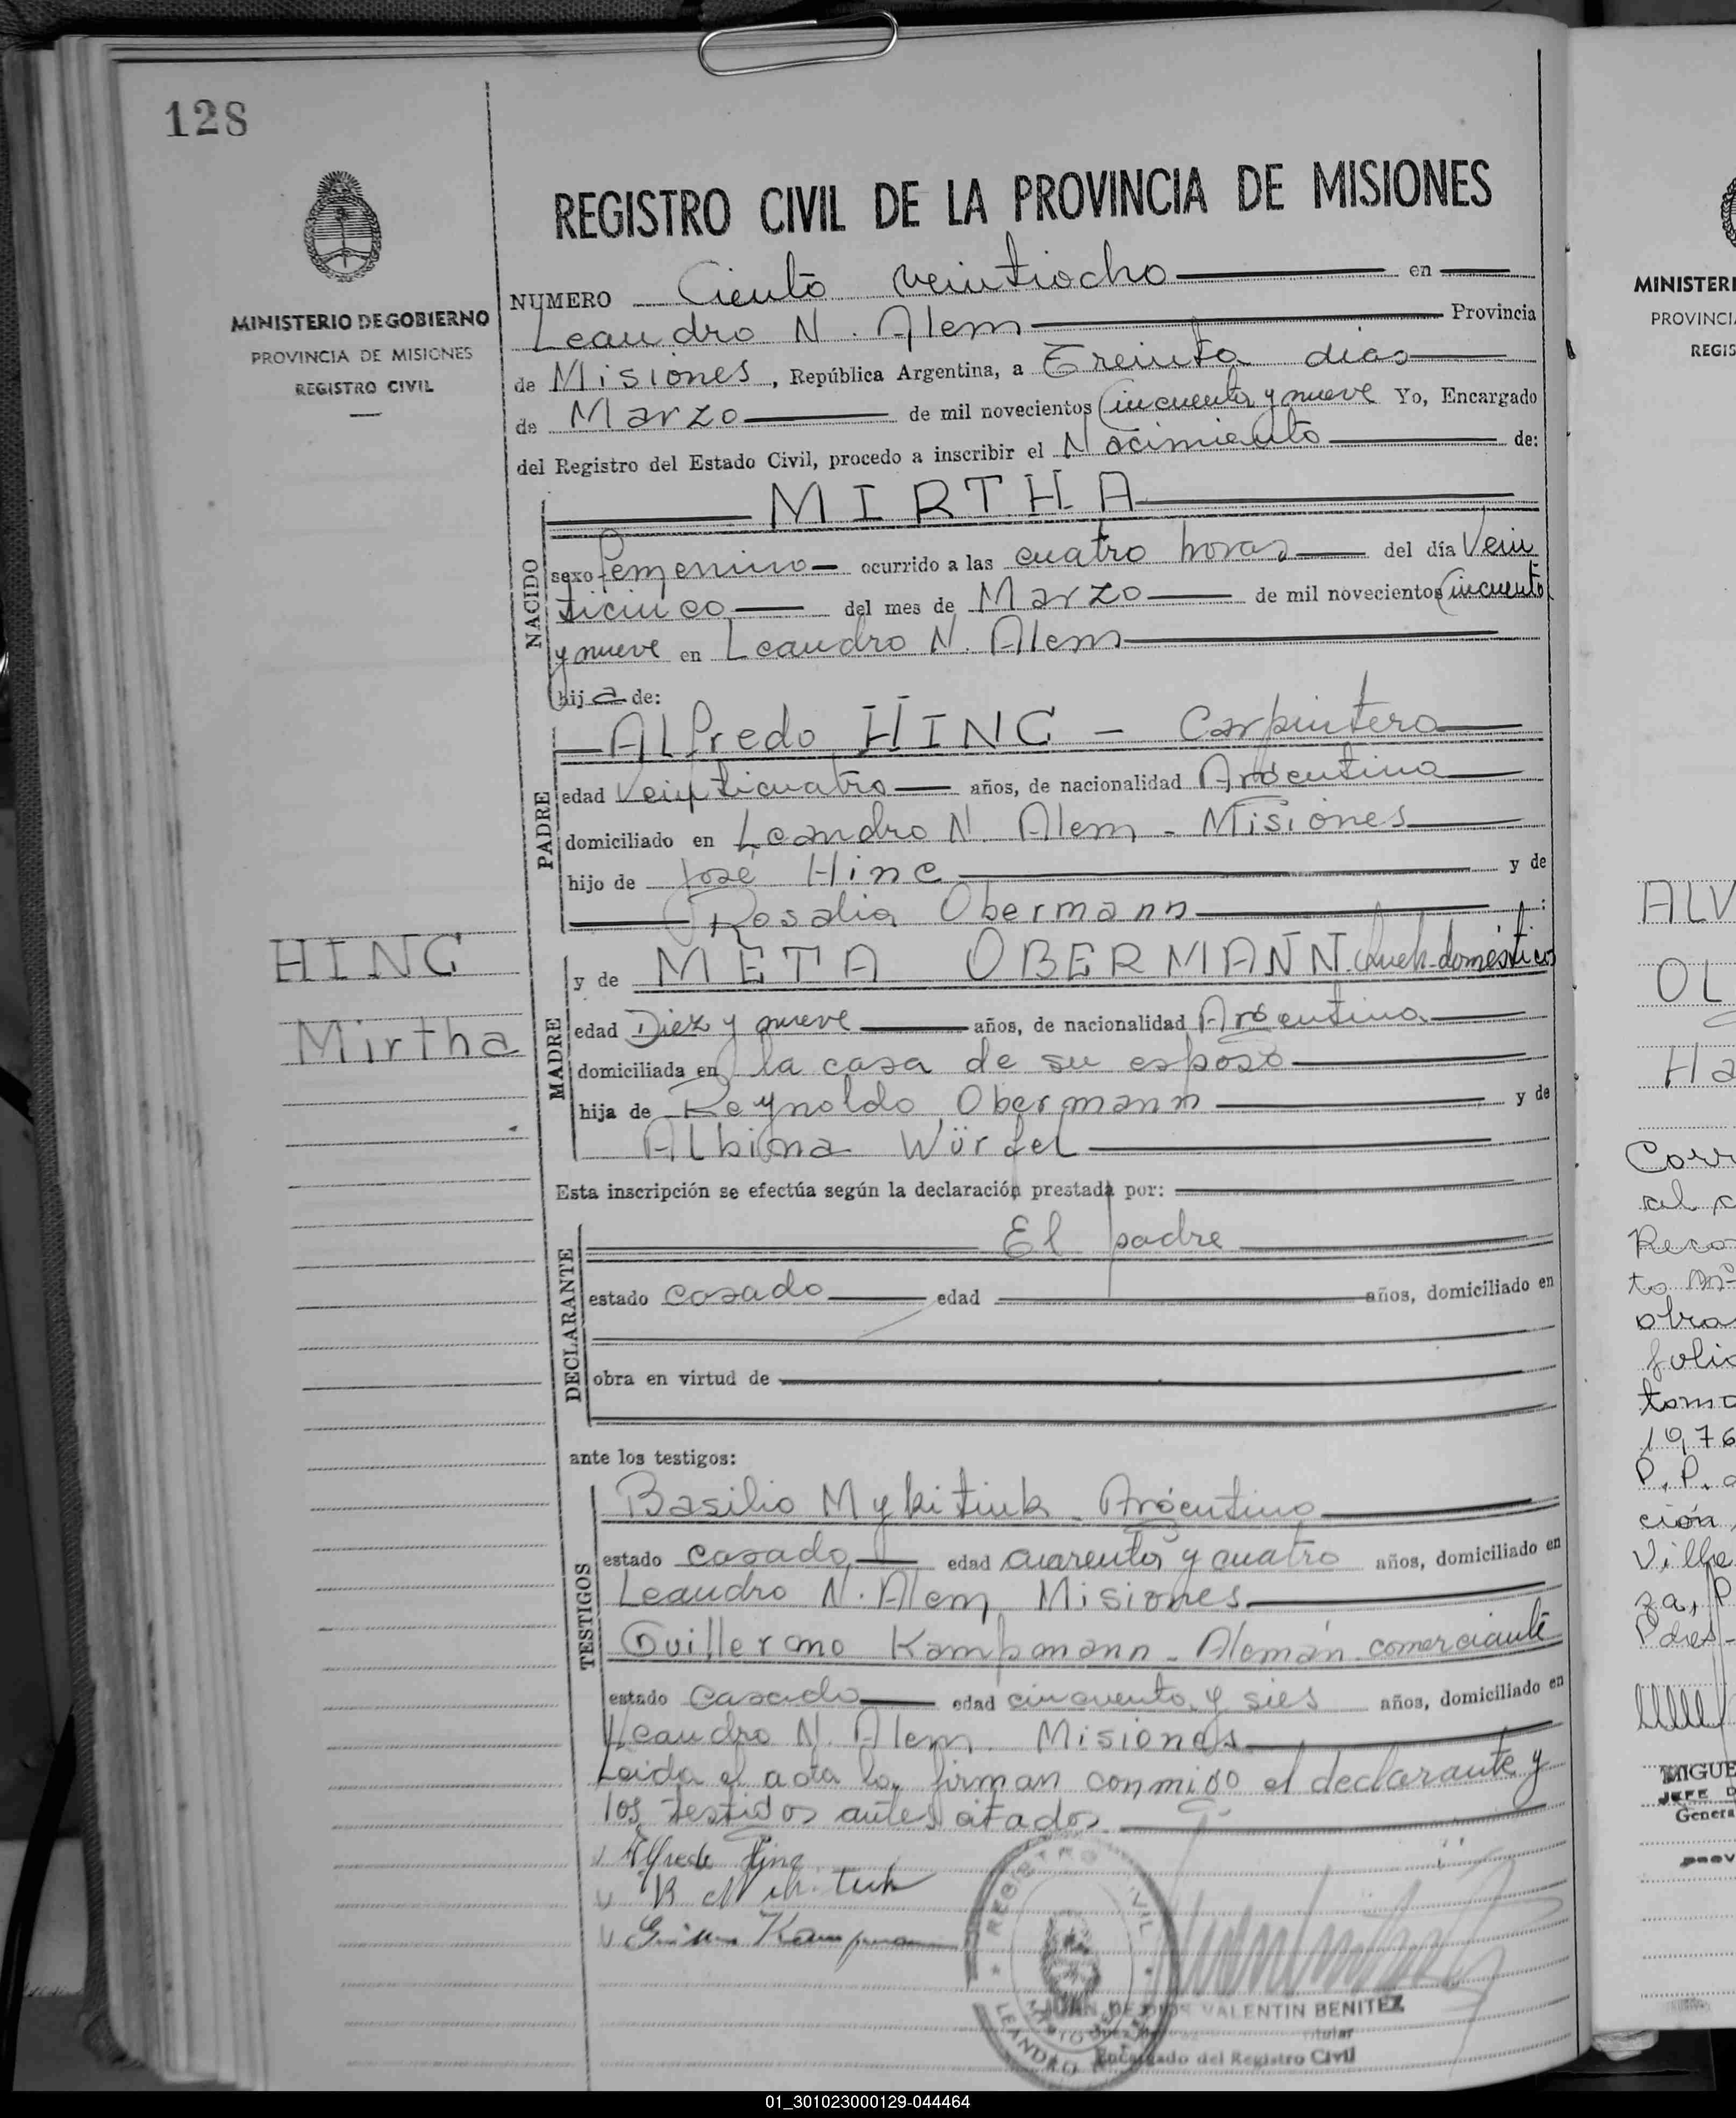 128
MINISTERIO DE GOBIERNO
PROVINCIA DE MISIONES
REGISTRO CIVIL
REGISTRO CIVIL DE LA PROVINCIA DE MISIONES
NUMERO Ciento veintiocho en
Leandro N. Alem Provincia
de Misiones, República Argentina, a Treinta dias
de Marzo de mil novecientos cincuenta y nueve Yo, Encargado
del Registro del Estado Civil, procedo a inscribir el Nacimiento de:
MIRTHA
NACIDO
sexo femenino ocurrido a las cuatro horas del día Vein
ticinco del mes de Marzo de mil novecientos cincuenta
y nueve en Leandro N. Alem
hija de:
PADRE
Alfredo HINC - Carpintero
edad Veinticuatro años, de nacionalidad Argentina
domiciliado en Leandro N. Alem - Misiones
hijo de José Hinc y de
Rosalia Obermann
HINC
Mirtha
MADRE
y de META OBERMANN. Queh. domésticos
edad Diez y nueve años, de nacionalidad Argentina
domiciliada en la casa de su esposo
hija de Reynoldo Obermann y de
Albina Würfel
Esta inscripción se efectúa según la declaración prestada por:
DECLARANTE
El padre
estado casado edad años, domiciliado en
obra en virtud de
ante los testigos:
TESTIGOS
Basilio Mykitiuk - Argentino
estado casado edad cuarenta y cuatro años, domiciliado en
Leandro N. Alem Misiones
Guillermo Kampmann - Alemán - comerciante
estado casado edad cincuenta y sies años, domiciliado en
Leandro N. Alem Misiones
Leida el acta la firman conmigo el declarante y
los testigos antes citados.
Alfredo Hinc
Kampmann
REGISTRO CIVIL
LEANDRO N.
JUAN DE DIOS VALENTIN BENITEZ
Titular
Encargado del Registro Civil
MINISTERI
PROVINCIA
REGIS
ALV
OL
Ha
Corr
Reco
obra
folio
tomo
1976
P.P.
ción
Vilhe
za, P
MIGUE
JEFE D
Genera
01_301023000129-044464